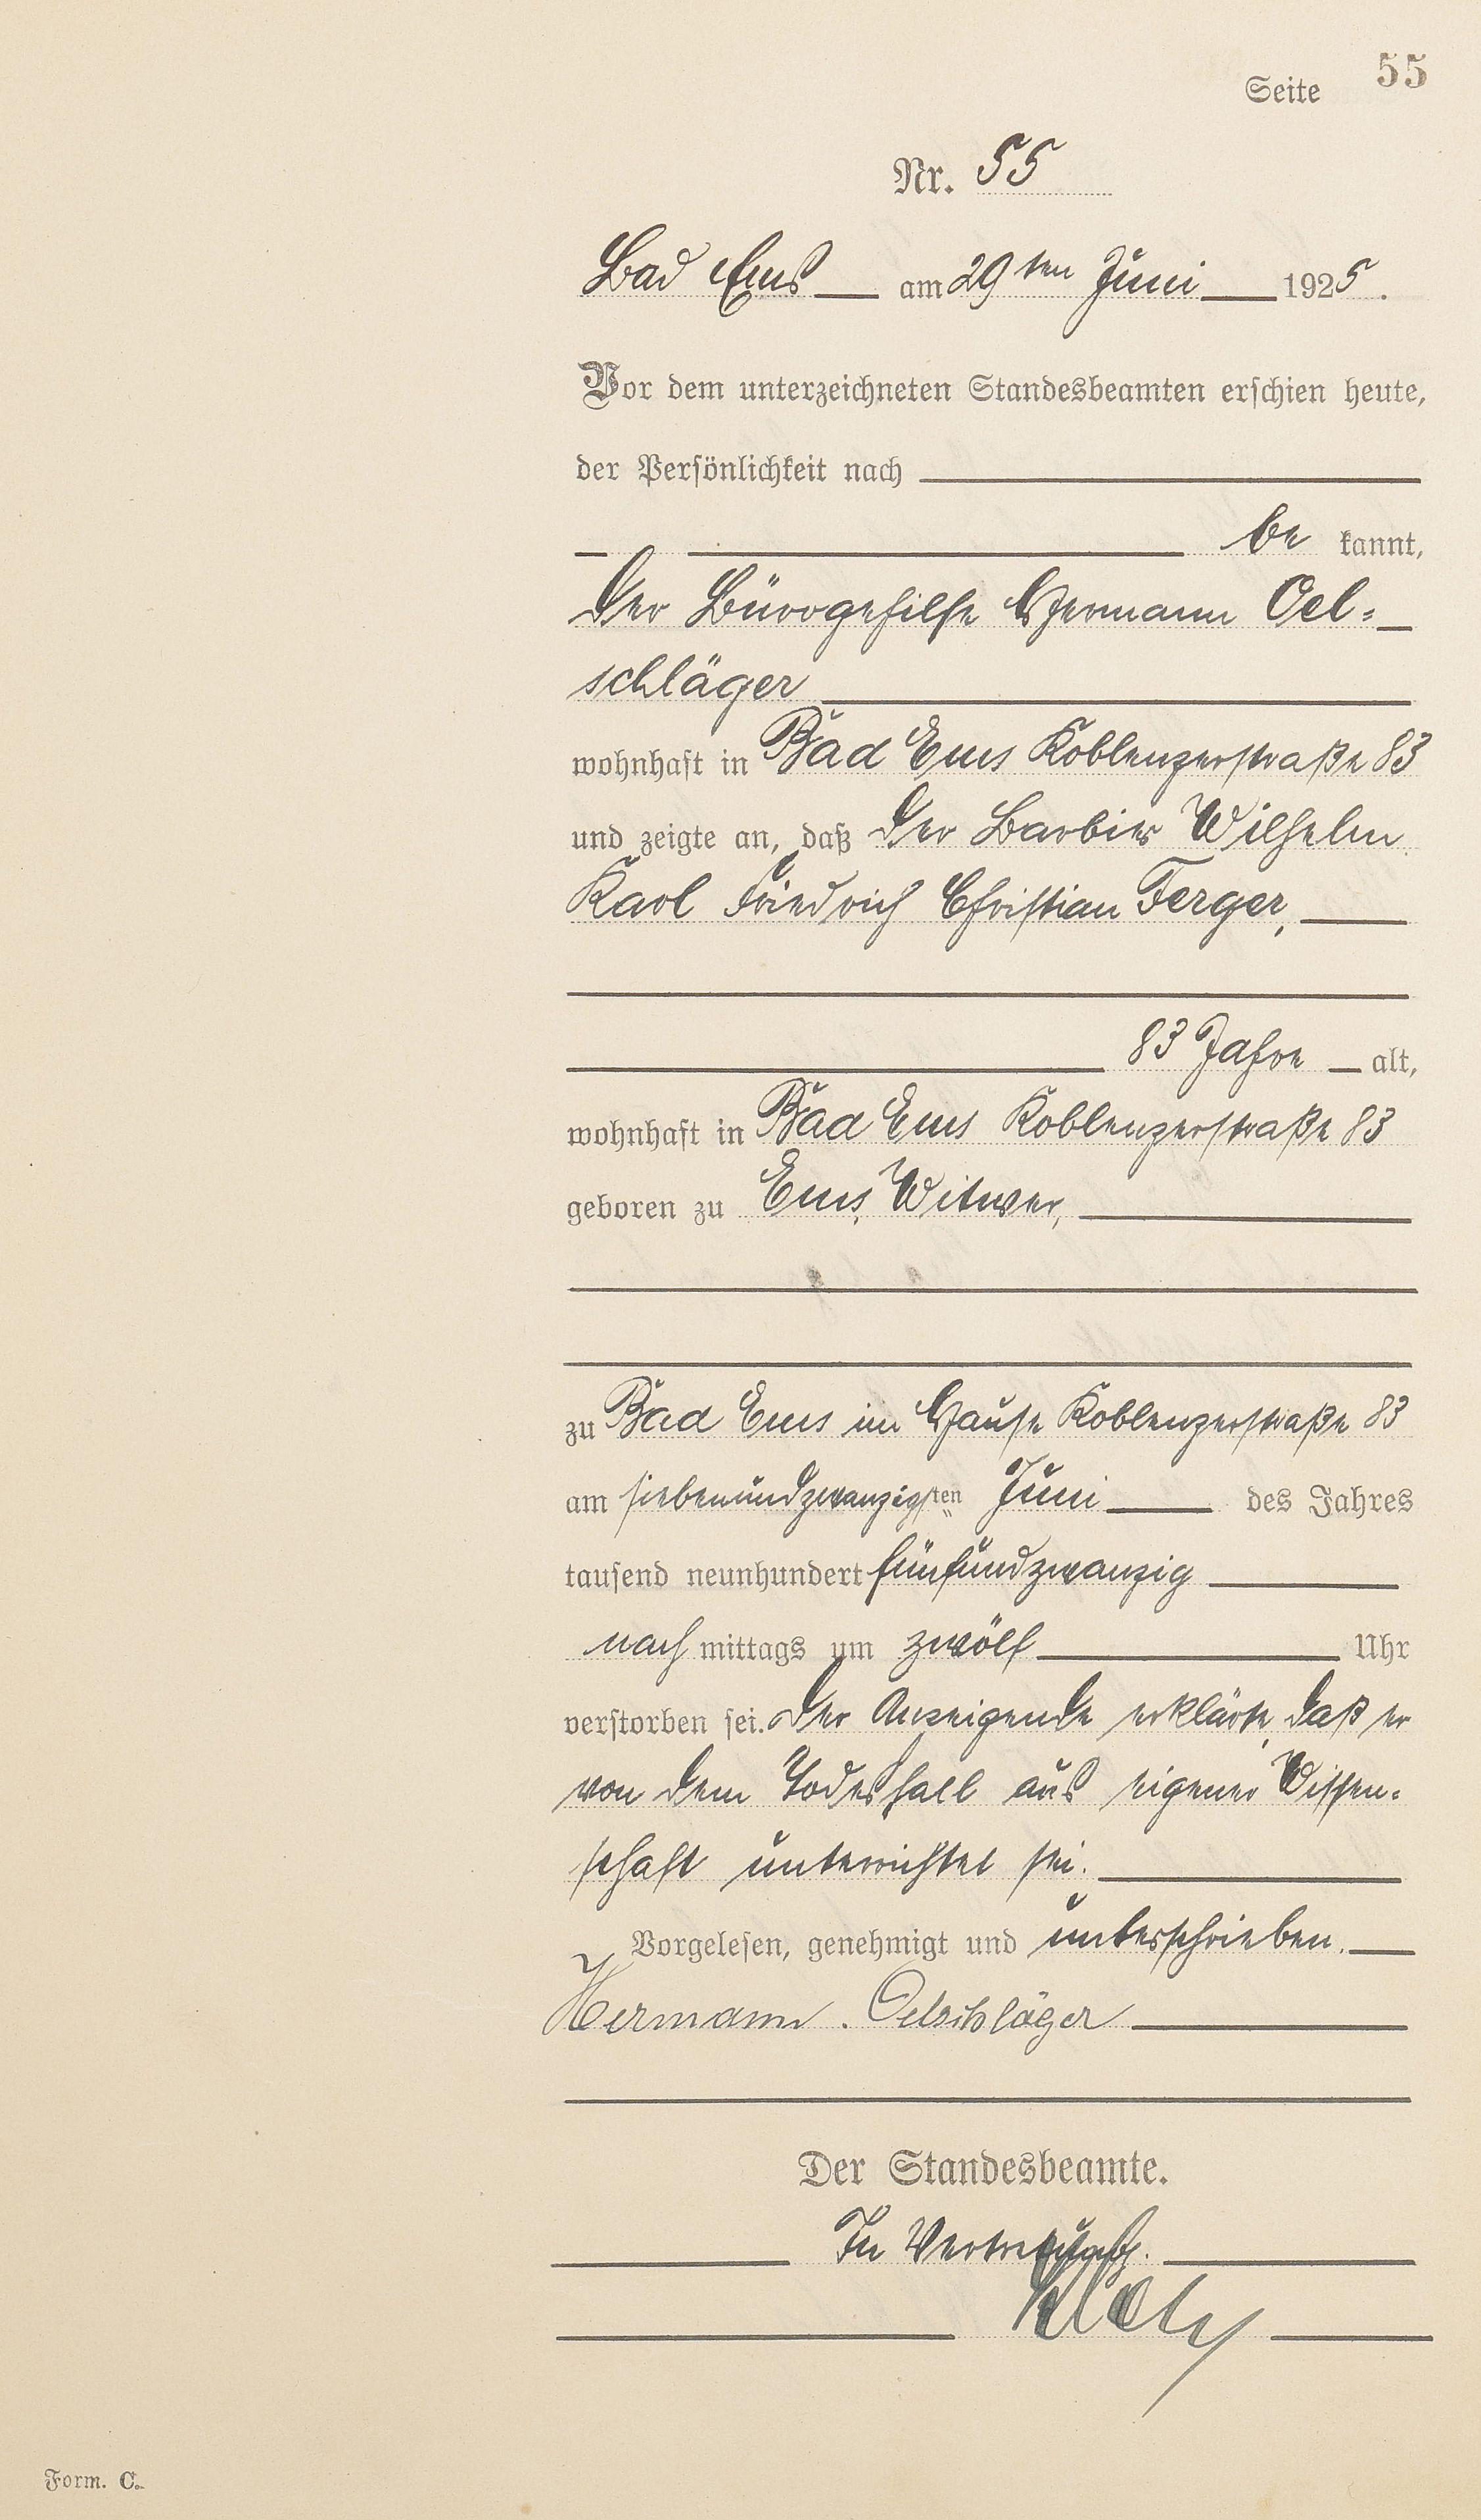 Seite 55
Nr. 55
Bad Ems am 29ten Juni 1925.
Vor dem unterzeichneten Standesbeamten erschien heute,
der Persönlichkeit nach
be kannt,
der Bürogehilfe Hermann Oel-
schläger
wohnhaft in Bad Ems Koblenzerstraße 83
und zeigte an, daß der Barbier Wilhelm
Karl Friedrich Christian Ferger,
83 Jahre alt,
wohnhaft in Bad Ems Koblenzerstraße 83
geboren zu Ems, Witwer,
zu Bad Ems im Hause Koblenzerstraße 83
am siebenundzwanzigsten Juni des Jahres
tausend neunhundert fünfundzwanzig
nach mittags um zwölf Uhr
verstorben sei. Der Anzeigende erklärte, daß er
von dem Todesfall aus eigener Wissen-
schaft unterrichtet sei.
Vorgelesen, genehmigt und unterschrieben.
Hermann. Oelschläger
Der Standesbeamte.
In Vertretung.
Form. C.